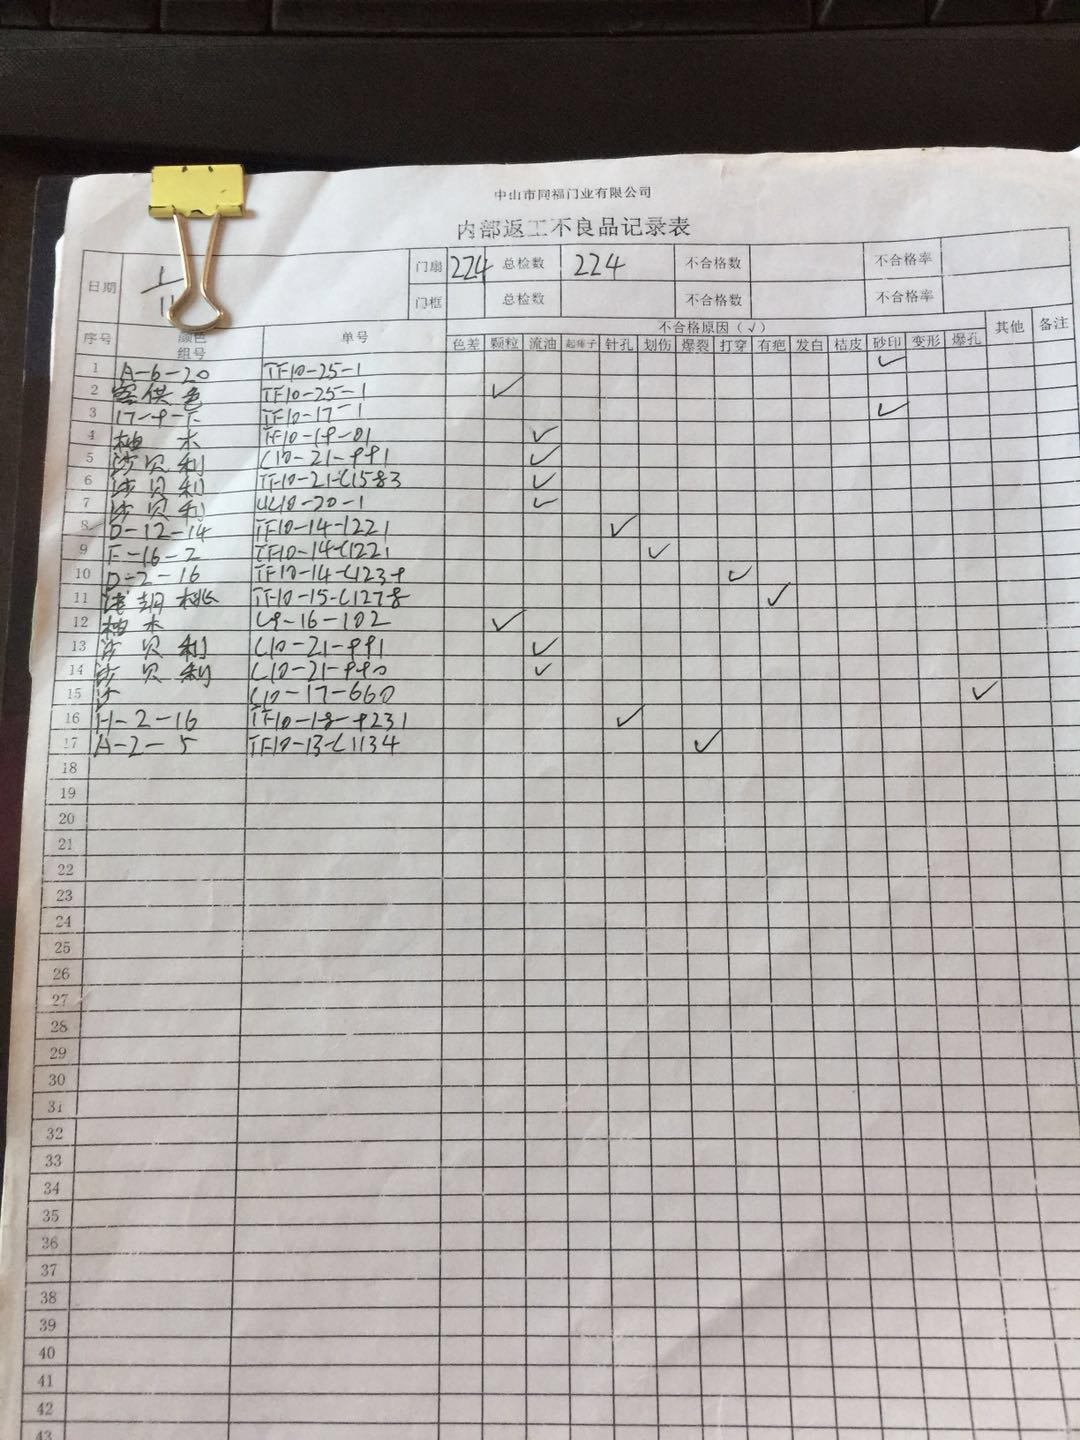 中山市同福门业有限公司
内部返工不良品记录表
日期 门扇 224 总检数 224 不合格数 不合格率
门框 总检数 不合格数 不合格率
序号 颜色 组号 单号 不合格原因(√) 其他 备注
色差 颗粒 流油 起痱子 针孔 划伤 爆裂 打穿 有疤 发白 桔皮 砂印 变形 爆孔
1 A-6-20 TF10-25-1 ✓
2 客供色 TF10-25-1 ✓
3 17-9-下 TF10-17-1 ✓
4 柚木 TF10-19-01 ✓
5 沙贝利 C10-21-991 ✓
6 沙贝利 TF10-21-C1583 ✓
7 沙贝利 10-20-1 ✓
8 D-12-14 TF10-14-1221 ✓
9 F-16-2 TF10-14-C1221 ✓
10 D-2-16 TF10-14-C1239 ✓
11 浅胡桃 TF10-15-C1278 ✓
12 柚木 C9-16-102 ✓
13 沙贝利 C10-21-991 ✓
14 沙贝利 C10-21-990 ✓
15 C10-17-660 ✓
16 H-2-16 TF10-18-9231 ✓
17 A-2-5 TF10-13-C1134 ✓
18
19
20
21
22
23
24
25
26
27
28
29
30
31
32
33
34
35
36
37
38
39
40
41
42
43